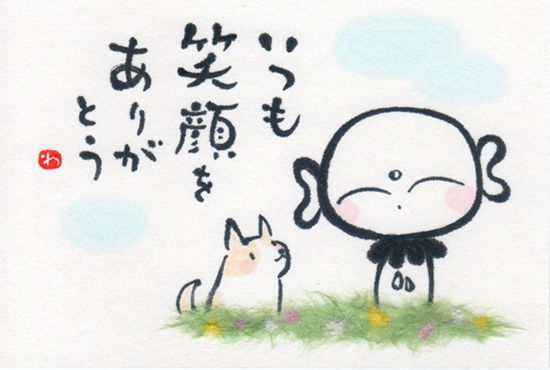 いつも
笑顔を
ありが
とう
わ